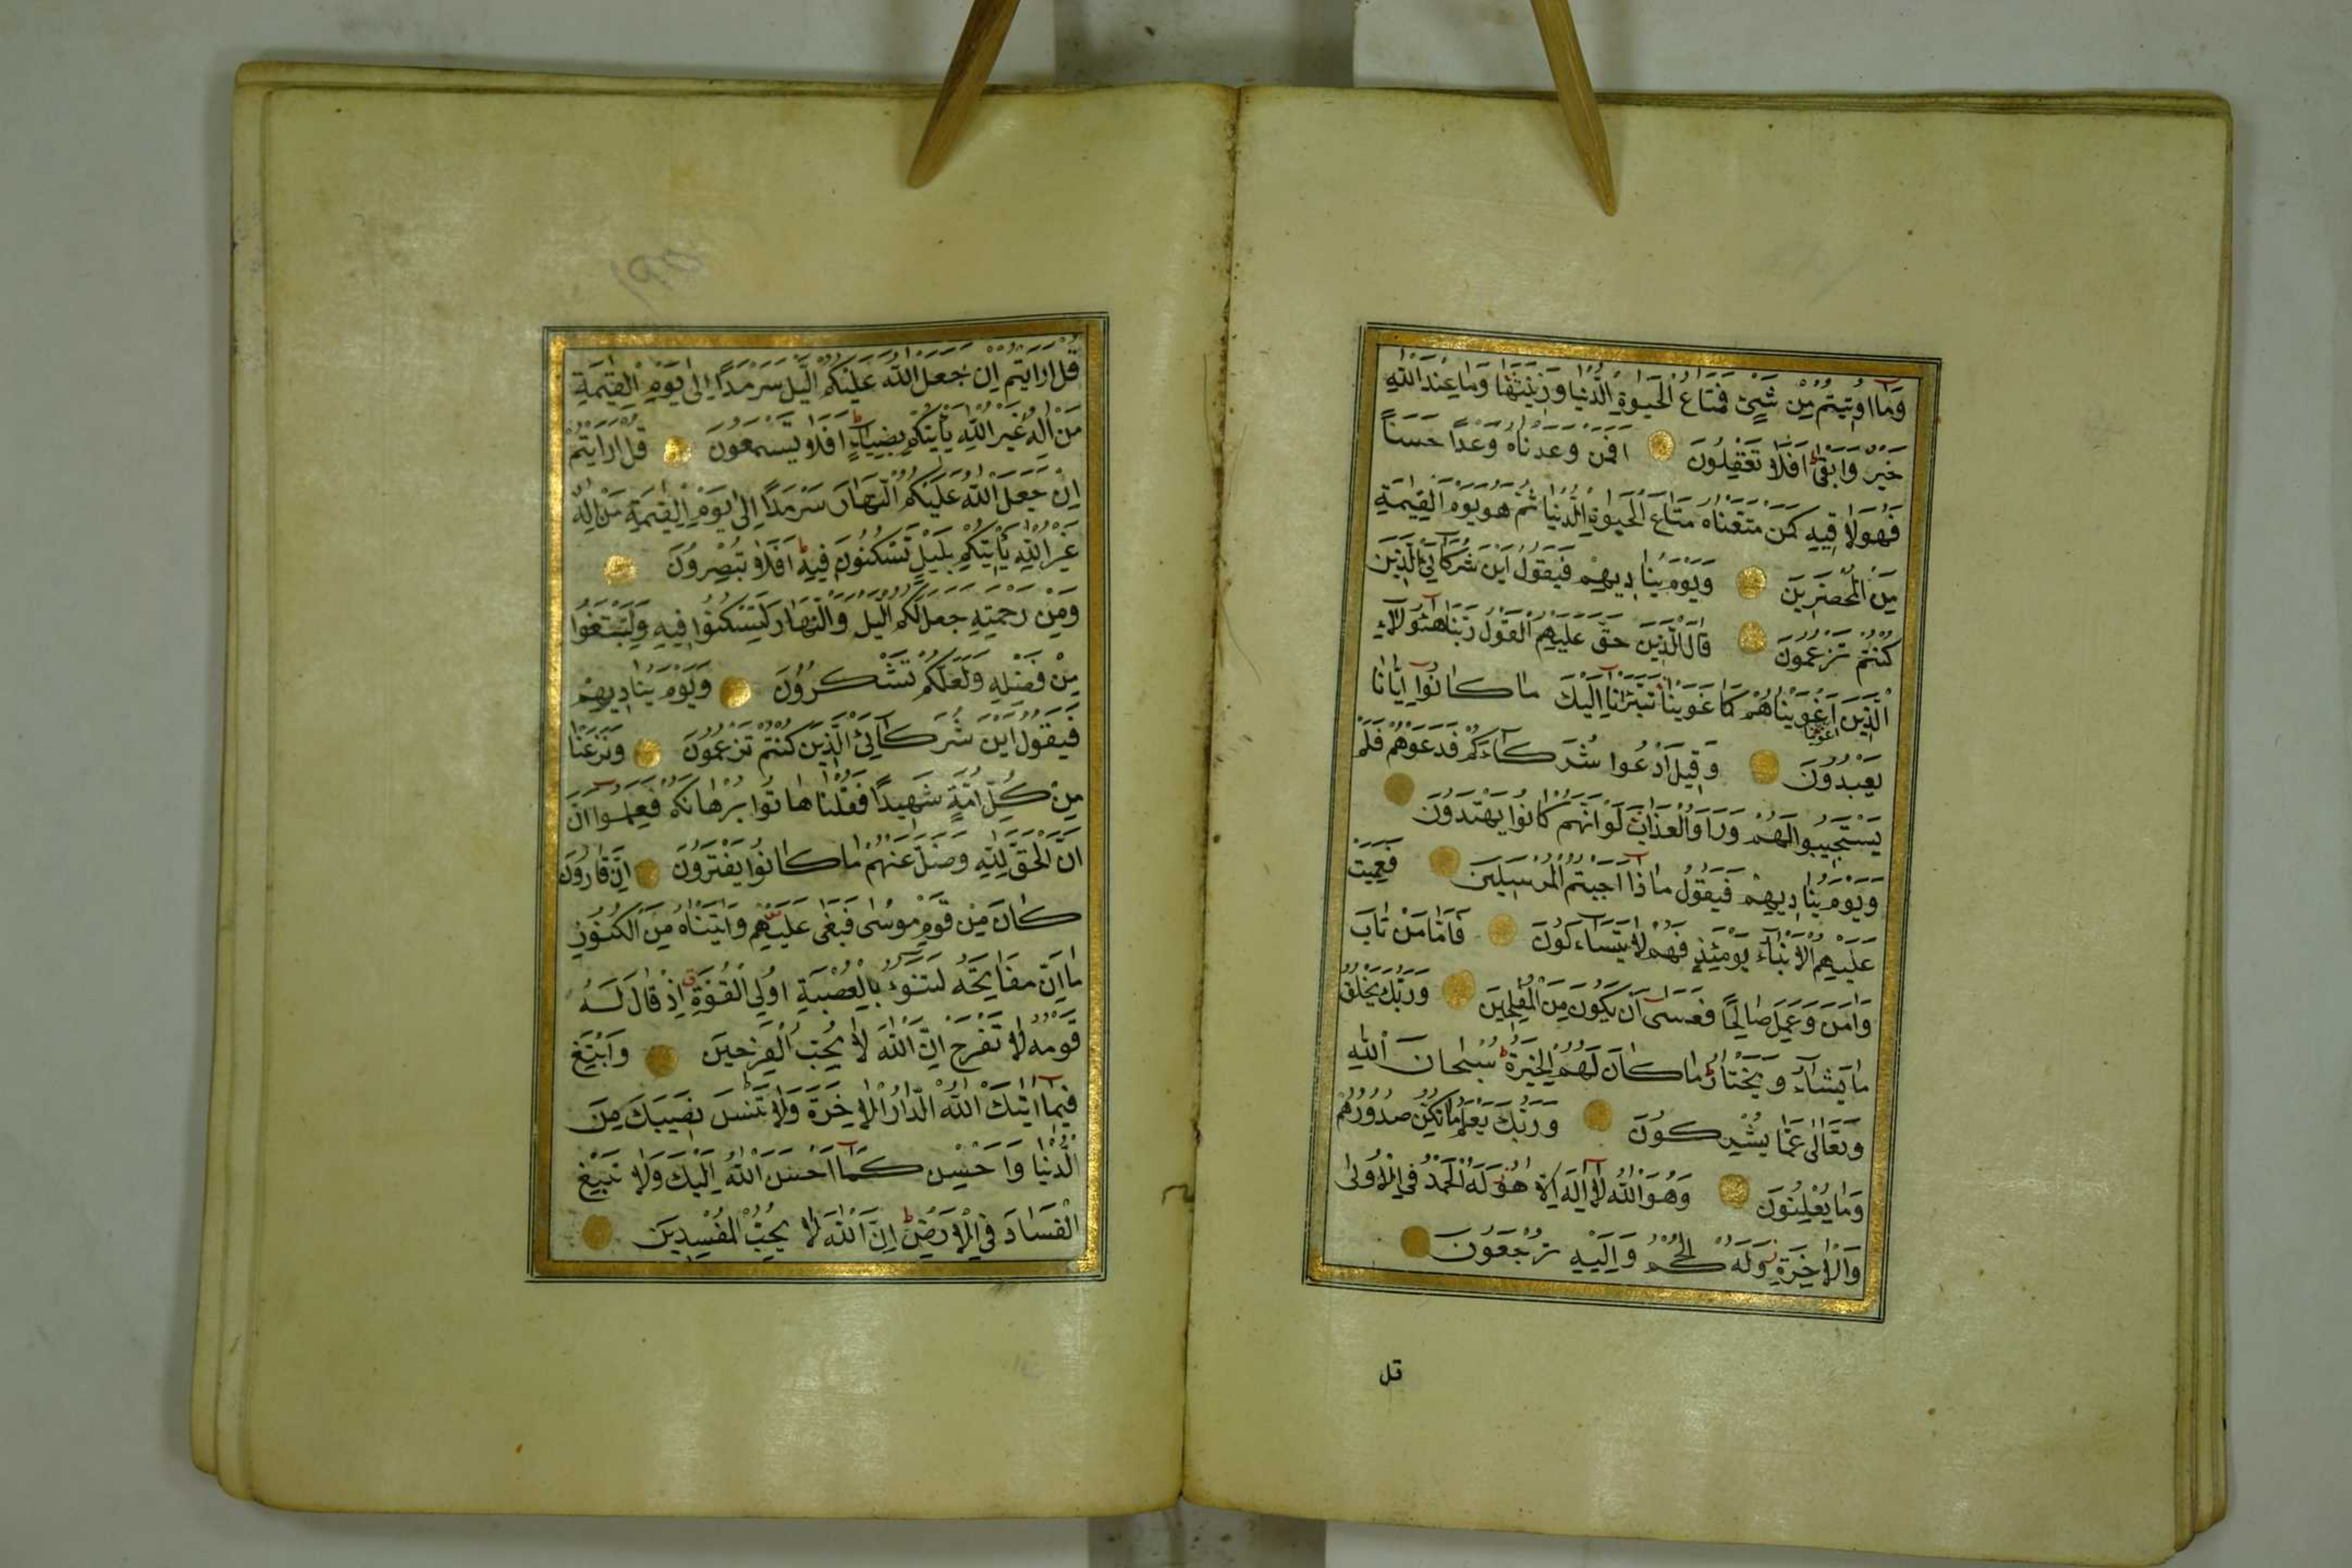 وَمَا اُوتِيتُمْ مِنْ شَيْئٍ فَمَتَاعُ الْحَيٰوةِ الدُّنْيَا وَزِينَتُهَا وَمَا عِنْدَ اللّٰهِ
خَيْرٌ وَاَبْقٰىۜ اَفَلَا تَعْقِلُونَ اَفَمَنْ وَعَدْنَاهُ وَعْدًا حَسَنًا
فَهُوَ لَاقِيهِ كَمَنْ مَتَّعْنَاهُ مَتَاعَ الْحَيٰوةِ الدُّنْيَا ثُمَّ هُوَ يَوْمَ الْقِيٰمَةِ
مِنَ الْمُحْضَرِينَ وَيَوْمَ يُنَادِيهِمْ فَيَقُولُ اَيْنَ شُرَكَائِيَ الَّذِينَ
كُنْتُمْ تَزْعُمُونَ قَالَ الَّذِينَ حَقَّ عَلَيْهِمُ الْقَوْلُ رَبَّنَا هٰٓؤُلَاءِ
الَّذِينَ اَغْوَيْنَاهُمْ كَمَا غَوَيْنَا تَبَرَّأْنَا اِلَيْكَ مَا كَانُوا اِيَّانَا
اغوينا
يَعْبُدُونَ وَقِيلَ ادْعُوا شُرَكَاءَكُمْ فَدَعَوْهُمْ فَلَمْ
يَسْتَجِيبُوا لَهُمْ وَرَاَوُا الْعَذَابَ لَوْ اَنَّهُمْ كَانُوا يَهْتَدُونَ
وَيَوْمَ يُنَادِيهِمْ فَيَقُولُ مَاذَا اَجَبْتُمُ الْمُرْسَلِينَ فَعَمِيَتْ
عَلَيْهِمُ الْاَنْبَاءُ يَوْمَئِذٍ فَهُمْ لَا يَتَسَاءَلُونَ فَاَمَّا مَنْ تَابَ
وَاٰمَنَ وَعَمِلَ صَالِحًا فَعَسٰى اَنْ يَكُونَ مِنَ الْمُفْلِحِينَ وَرَبُّكَ يَخْلُقُ
مَا يَشَاءُ وَيَخْتَارُ مَا كَانَ لَهُمُ الْخِيَرَةُ سُبْحَانَ اللّٰهِ
وَتَعَالٰى عَمَّا يُشْرِكُونَ وَرَبُّكَ يَعْلَمُ مَا تُكِنُّ صُدُورُهُمْ
وَمَا يُعْلِنُونَ وَهُوَ اللّٰهُ لَا اِلٰهَ اِلَّا هُوَ لَهُ الْحَمْدُ فِي الْاُولٰى
وَالْاٰخِرَةِ وَلَهُ الْحُكْمُ وَاِلَيْهِ تُرْجَعُونَ
قل
قُلْ اَرَاَيْتُمْ اِنْ جَعَلَ اللّٰهُ عَلَيْكُمُ الَّيْلَ سَرْمَدًا اِلٰى يَوْمِ الْقِيٰمَةِ
مَنْ اِلٰهٌ غَيْرُ اللّٰهِ يَأْتِيكُمْ بِضِيَاءٍ اَفَلَا تَسْمَعُونَ قُلْ اَرَاَيْتُمْ
اِنْ جَعَلَ اللّٰهُ عَلَيْكُمُ النَّهَارَ سَرْمَدًا اِلٰى يَوْمِ الْقِيٰمَةِ مَنْ اِلٰهٌ
غَيْرُ اللّٰهِ يَأْتِيكُمْ بِلَيْلٍ تَسْكُنُونَ فِيهِ اَفَلَا تُبْصِرُونَ
وَمِنْ رَحْمَتِهِ جَعَلَ لَكُمُ الَّيْلَ وَالنَّهَارَ لِتَسْكُنُوا فِيهِ وَلِتَبْتَغُوا
مِنْ فَضْلِهِ وَلَعَلَّكُمْ تَشْكُرُونَ وَيَوْمَ يُنَادِيهِمْ
فَيَقُولُ اَيْنَ شُرَكَائِيَ الَّذِينَ كُنْتُمْ تَزْعُمُونَ وَنَزَعْنَا
مِنْ كُلِّ اُمَّةٍ شَهِيدًا فَقُلْنَا هَاتُوا بُرْهَانَكُمْ فَعَلِمُوا اَنَّ
اَنَّ الْحَقَّ لِلّٰهِ وَضَلَّ عَنْهُمْ مَا كَانُوا يَفْتَرُونَ اِنَّ قَارُونَ
كَانَ مِنْ قَوْمِ مُوسٰى فَبَغٰى عَلَيْهِمْ وَاٰتَيْنَاهُ مِنَ الْكُنُوزِ
مَا اِنَّ مَفَاتِحَهُ لَتَنُوءُ بِالْعُصْبَةِ اُولِي الْقُوَّةِ اِذْ قَالَ لَهُ
قَوْمُهُ لَا تَفْرَحْ اِنَّ اللّٰهَ لَا يُحِبُّ الْفَرِحِينَ وَابْتَغِ
فِيمَا اٰتٰيكَ اللّٰهُ الدَّارَ الْاٰخِرَةَ وَلَا تَنْسَ نَصِيبَكَ مِنَ
الدُّنْيَا وَاَحْسِنْ كَمَا اَحْسَنَ اللّٰهُ اِلَيْكَ وَلَا تَبْغِ
الْفَسَادَ فِي الْاَرْضِ اِنَّ اللّٰهَ لَا يُحِبُّ الْمُفْسِدِينَ